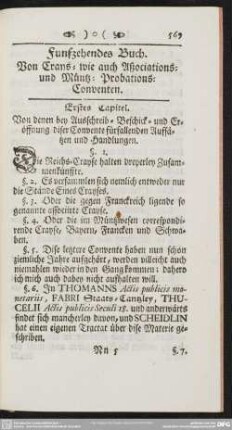 ☙ ) o ( ❧ 569
Funfzehendes Buch.
Von Crays- wie auch Aßociations-
und Müntz-Probations-
Conventen.
Erstes Capitel.
Von denen bey Ausschreib- Beschick- und Er-
öffnung diser Convente fürfallenden Auffsä-
tzen und Handlungen.
§. 1.
Die Reichs-Crayse halten dreyerley Zusam-
menkünffte.
§. 2. Es versammlen sich nemlich entweder nur
die Stände Eines Crayses.
§. 3. Oder die gegen Franckreich ligende so
genannte associirte Crayse.
§. 4. Oder die im Müntzwesen correspondi-
rende Crayse, Bayern, Francken und Schwa-
ben.
§. 5. Dise letztere Convente haben nun schon
zimliche Jahre aufgehört, werden villeicht auch
niemahlen wieder in den Gang kommen: dahero
ich mich auch dabey nicht aufhalten will.
§. 6. In THOMANNS Actis publicis mo-
netariis, FABRI Staats-Cantzley, THU-
CELII Actis publicis seculi 18. und anderwärts
findet sich mancherley davon, und SCHEIDLIN
hat einen eigenen Tractat über dise Materie ge-
schriben.
Nn 5 §. 7.